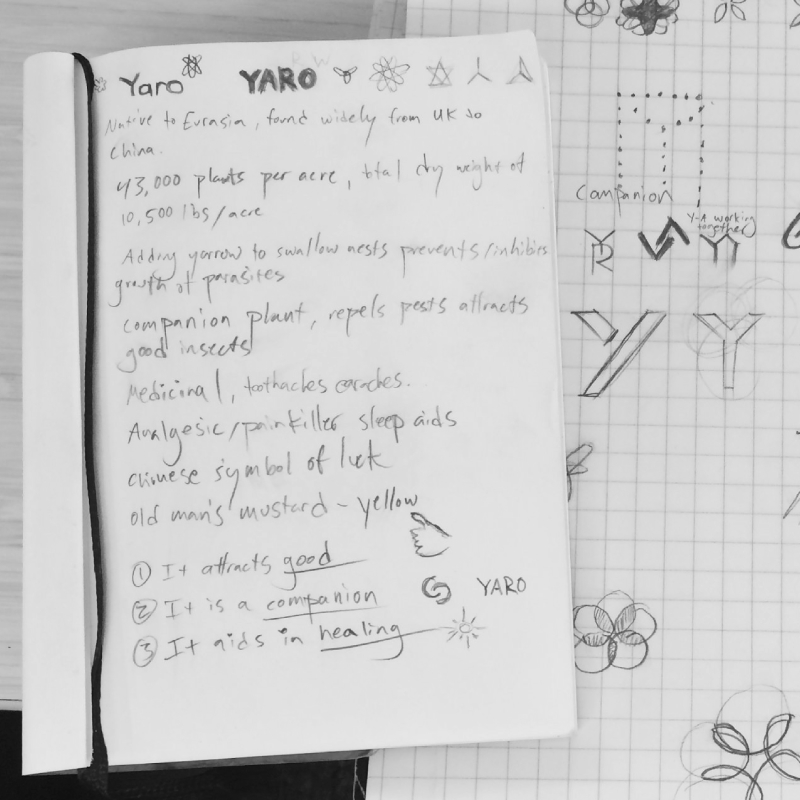 Yaro YARO
Native to Eurasia, found widely from UK to
China.
43,000 plants per acre, total dry weight of
10,500 lbs/acre
Adding yarrow to swallow nests prevents/inhibits
growth of parasites
Companion plant, repels pests attracts
good insects
Medicinal, toothaches earaches.
Analgesic/painkiller sleep aids
Chinese symbol of luck
Old man's mustard - yellow
① It attracts good
② It is a companion
YARO
③ It aids in healing
Companion
Y-A working
together
Y
Y